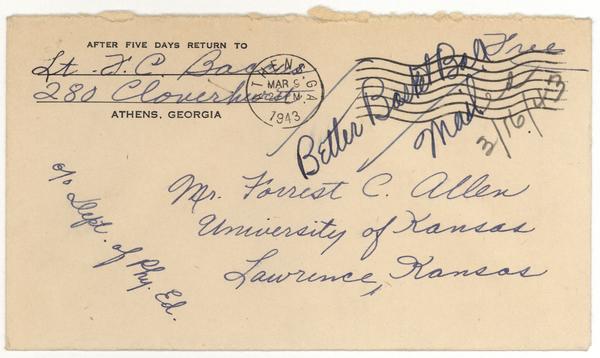 AFTER FIVE DAYS RETURN TO
Lt. F. C.
280 Cloverhurst
ATHENS, GEORGIA
ATHENS, GA.
MAR 9
PM
1943
Free
Better Basket Ball
Mailed
3/16/43
Mr. Forrest C. Allen
University of Kansas
Lawrence, Kansas
c/o Dept. of Phy. Ed.